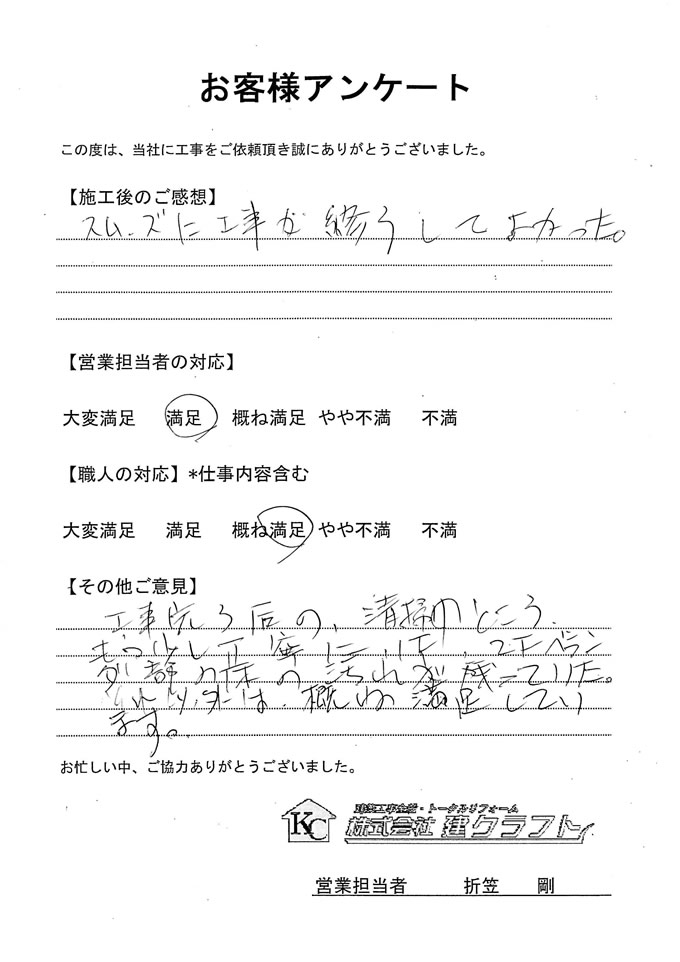 お客様アンケート
この度は、当社に工事をご依頼頂き誠にありがとうございました。
【施工後のご感想】
スムーズに工事が終うしてよかった。
【営業担当者の対応】
大変満足 満足 概ね満足 やや不満 不満
【職人の対応】*仕事内容含む
大変満足 満足 概ね満足 やや不満 不満
【その他ご意見】
工事完了后の、清掃のところ、
もう少し丁寧に
の汚れが残っていた。
それ以外は、概ね満足してい
ます。
お忙しい中、ご協力ありがとうございました。
KC
建築工事全般・トータルリフォーム
株式会社 建クラフト
営業担当者 折笠 剛